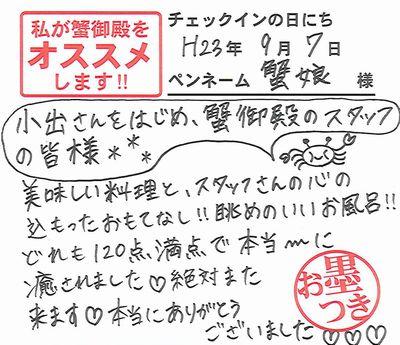 私が蟹御殿を
オススメ
します!!
チェックインの日にち
H23年 9月 7日
ペンネーム 蟹娘 様
小出さんをはじめ、蟹御殿のスタッフ
の皆様
美味しい料理と、スタッフさんの心の
込もったおもてなし!!眺めのいいお風呂!!
どれも120点満点で本当〜に
癒されました♡絶対また
来ます♡本当にありがとう
ございました♡♡♡
お墨
つき